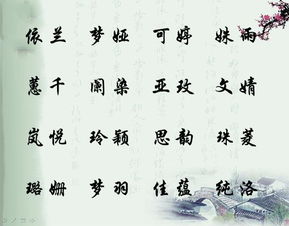 依兰 梦娅 可婷 姝雨
蕙千 阑染 亚玟 文婧
岚悦 玲颖 思韵 珠菱
璐姗 梦羽 佳蕴 纯洛